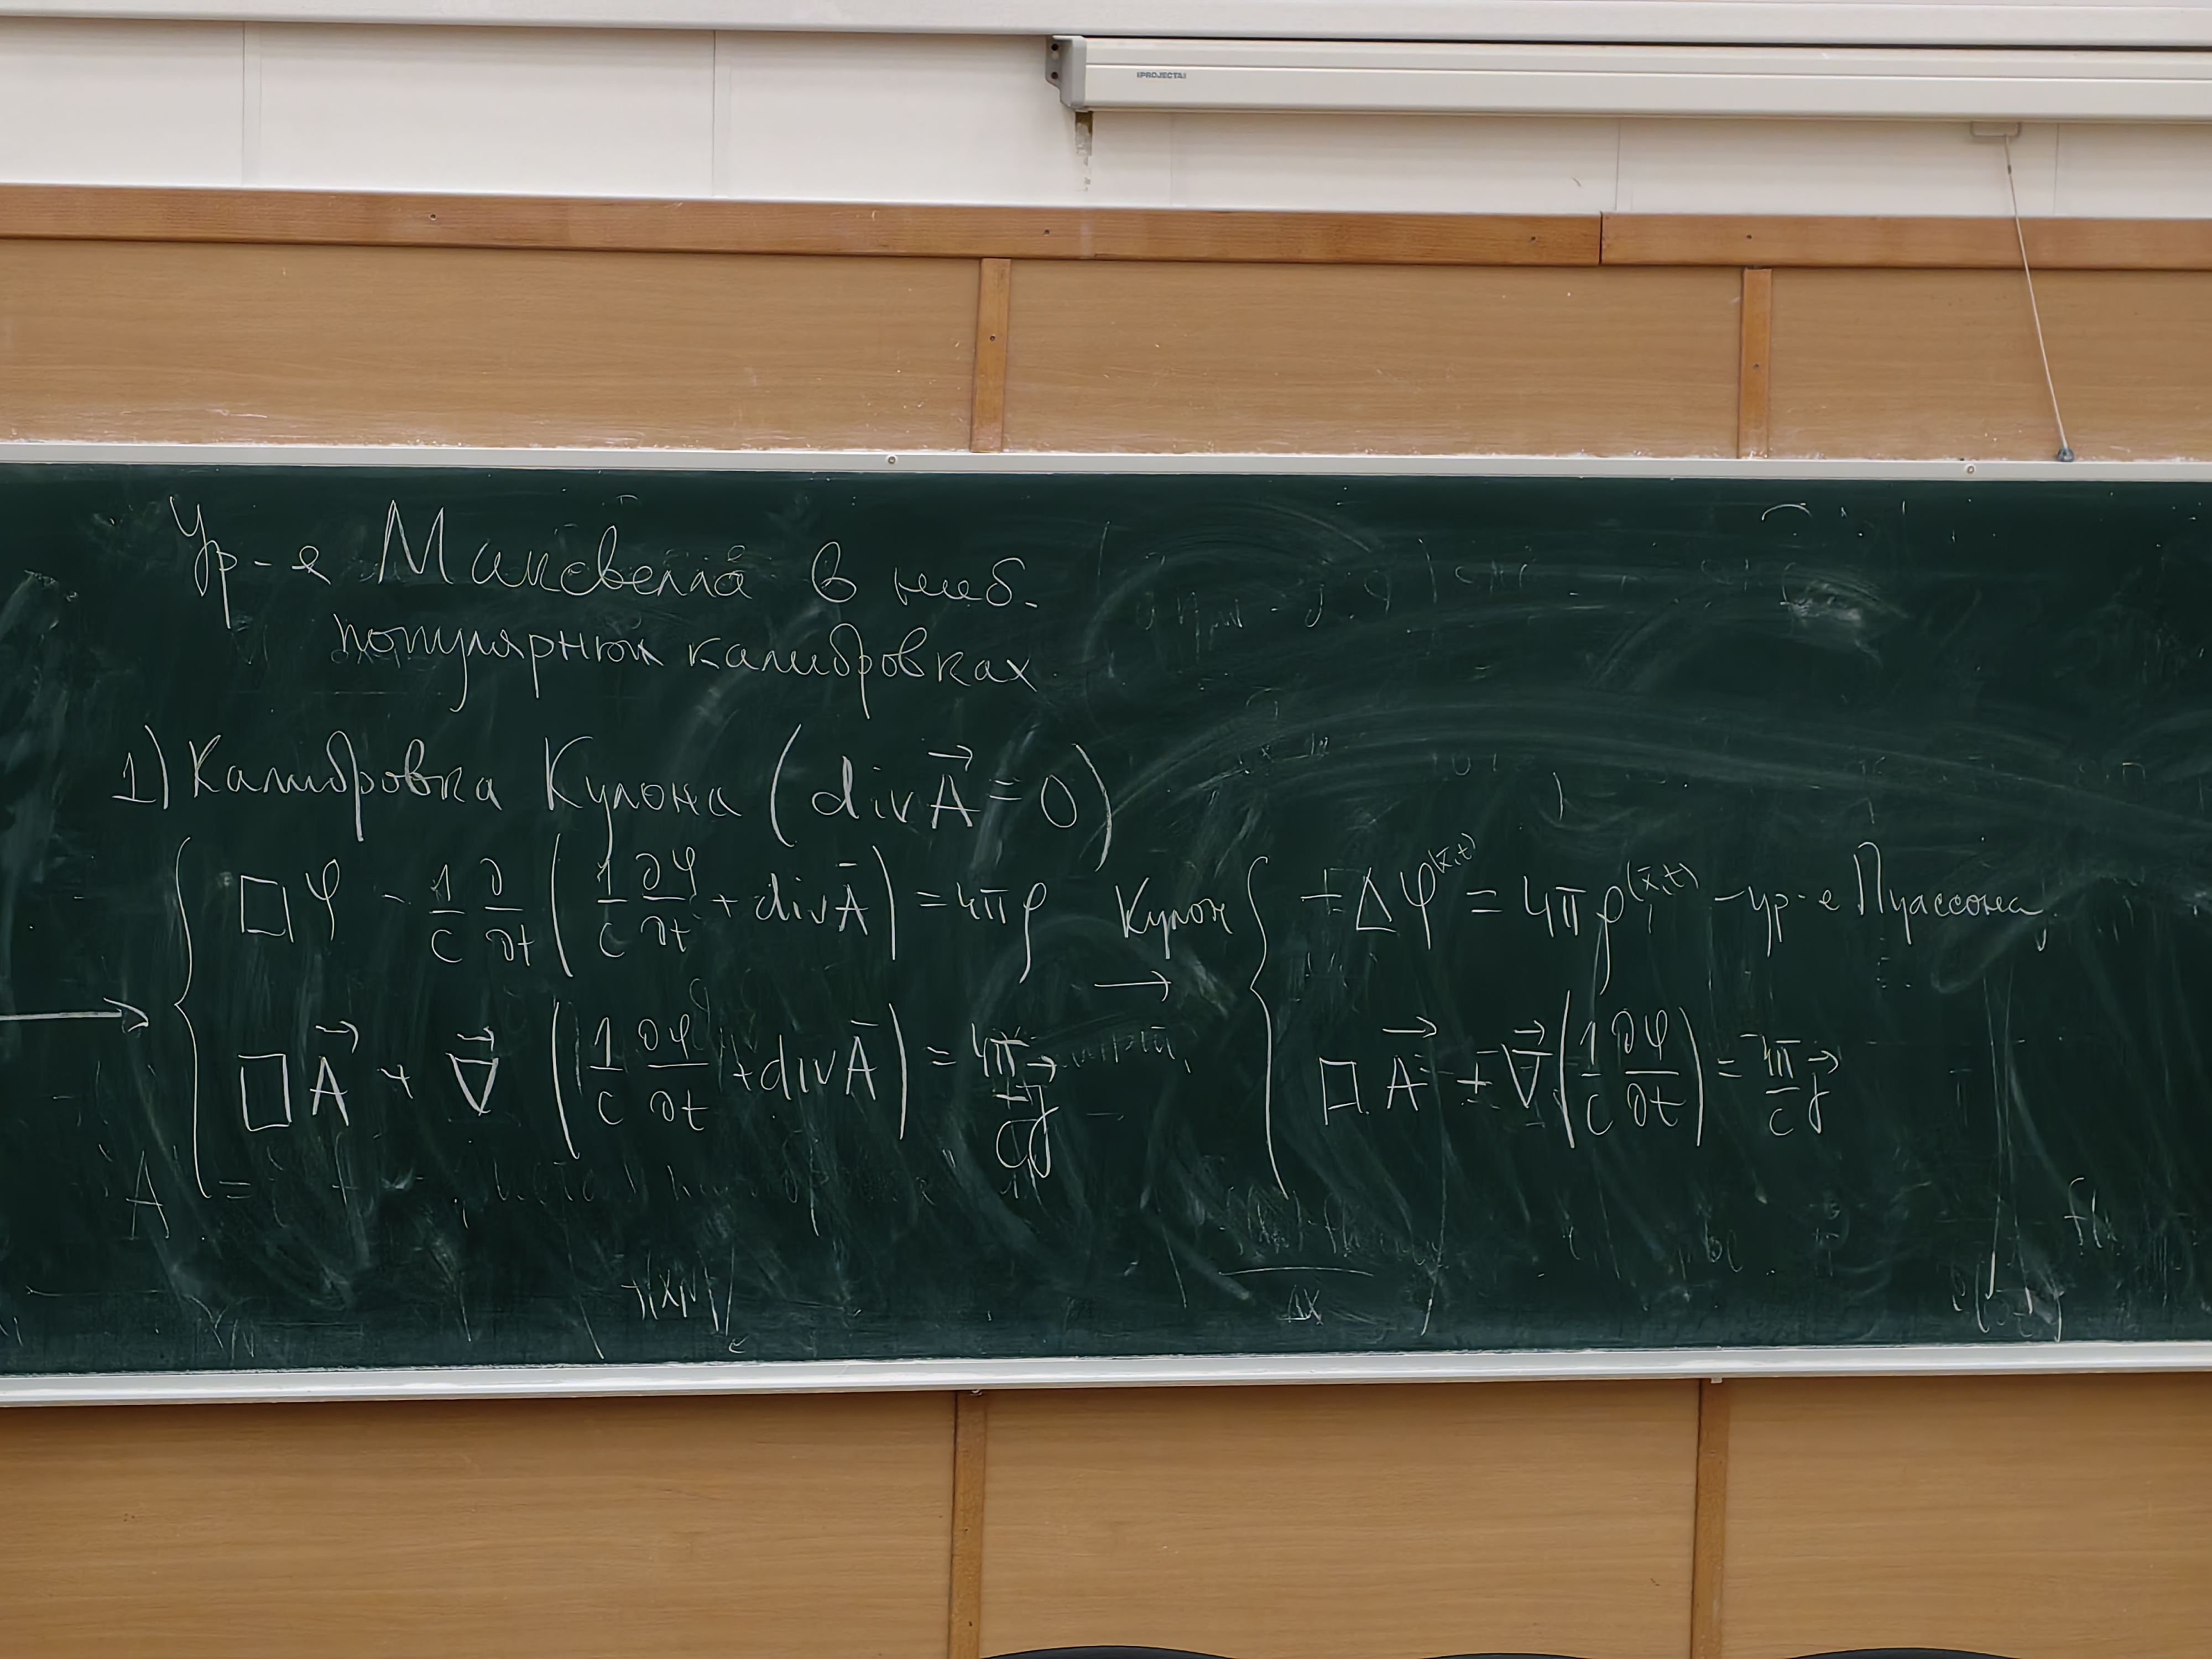 PROJECTA
Ур-е Максвелла в наиб.
популярных калибровках
1) Калибровка Кулона (div A⃗ = 0)
□φ - 1/c ∂/∂t (1/c ∂φ/∂t + div A̅) = 4πρ
□A⃗ + ∇⃗ (1/c ∂φ/∂t + div A̅) = 4π/c j⃗
Кулон →
-Δφ(x̅,t) = 4πρ(x̅,t) - ур-е Пуассона
□A⃗ + ∇⃗ (1/c ∂φ/∂t) = 4π/c j⃗
A =
Δx